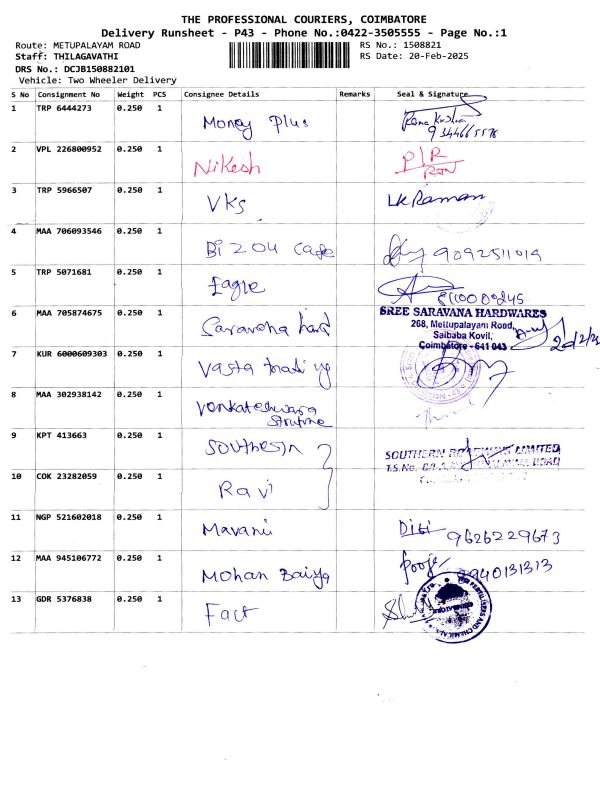 THE PROFESSIONAL COURIERS, COIMBATORE
Delivery Runsheet - P43 - Phone No.:0422-3505555 - Page No.:1
Route: METUPALAYAM ROAD
RS No.: 1508821
Staff: THILAGAVATHI
RS Date: 20-Feb-2025
DRS No.: DCJB150882101
Vehicle: Two Wheeler Delivery
S No Consignment No Weight PCS Consignee Details Remarks Seal & Signature
1 TRP 6444273 0.250 1
Money Plus
9344665578
2 VPL 226800952 0.250 1
Nikesh
3 TRP 5966507 0.250 1
VKS Raman
4 MAA 706093546 0.250 1
Bi 204 cafe 9092511019
5 TRP 5071681 0.250 1
Eagle
6 MAA 705874675 0.250 1
SREE SARAVANA HARDWARES
268, Mettupalayam Road,
Saibaba Kovil,
Coimbatore - 641 043
Saravana hard
7 KUR 6000609303 1
Vasta
8 MAA 302938142 0.250 1
Venkateshwara
9 KPT 413663 0.250 1
Southern
SOUTHERN ROADWAYS LIMITED
10 COK 23282059 0.250 1
Ravi
11 NGP 521602018 0.250 1
Mavani 9626229673
12 MAA 945106772 0.250 1
Mohan Baiya 9940131313
13 GDR 5376838 0.250 1
Fact